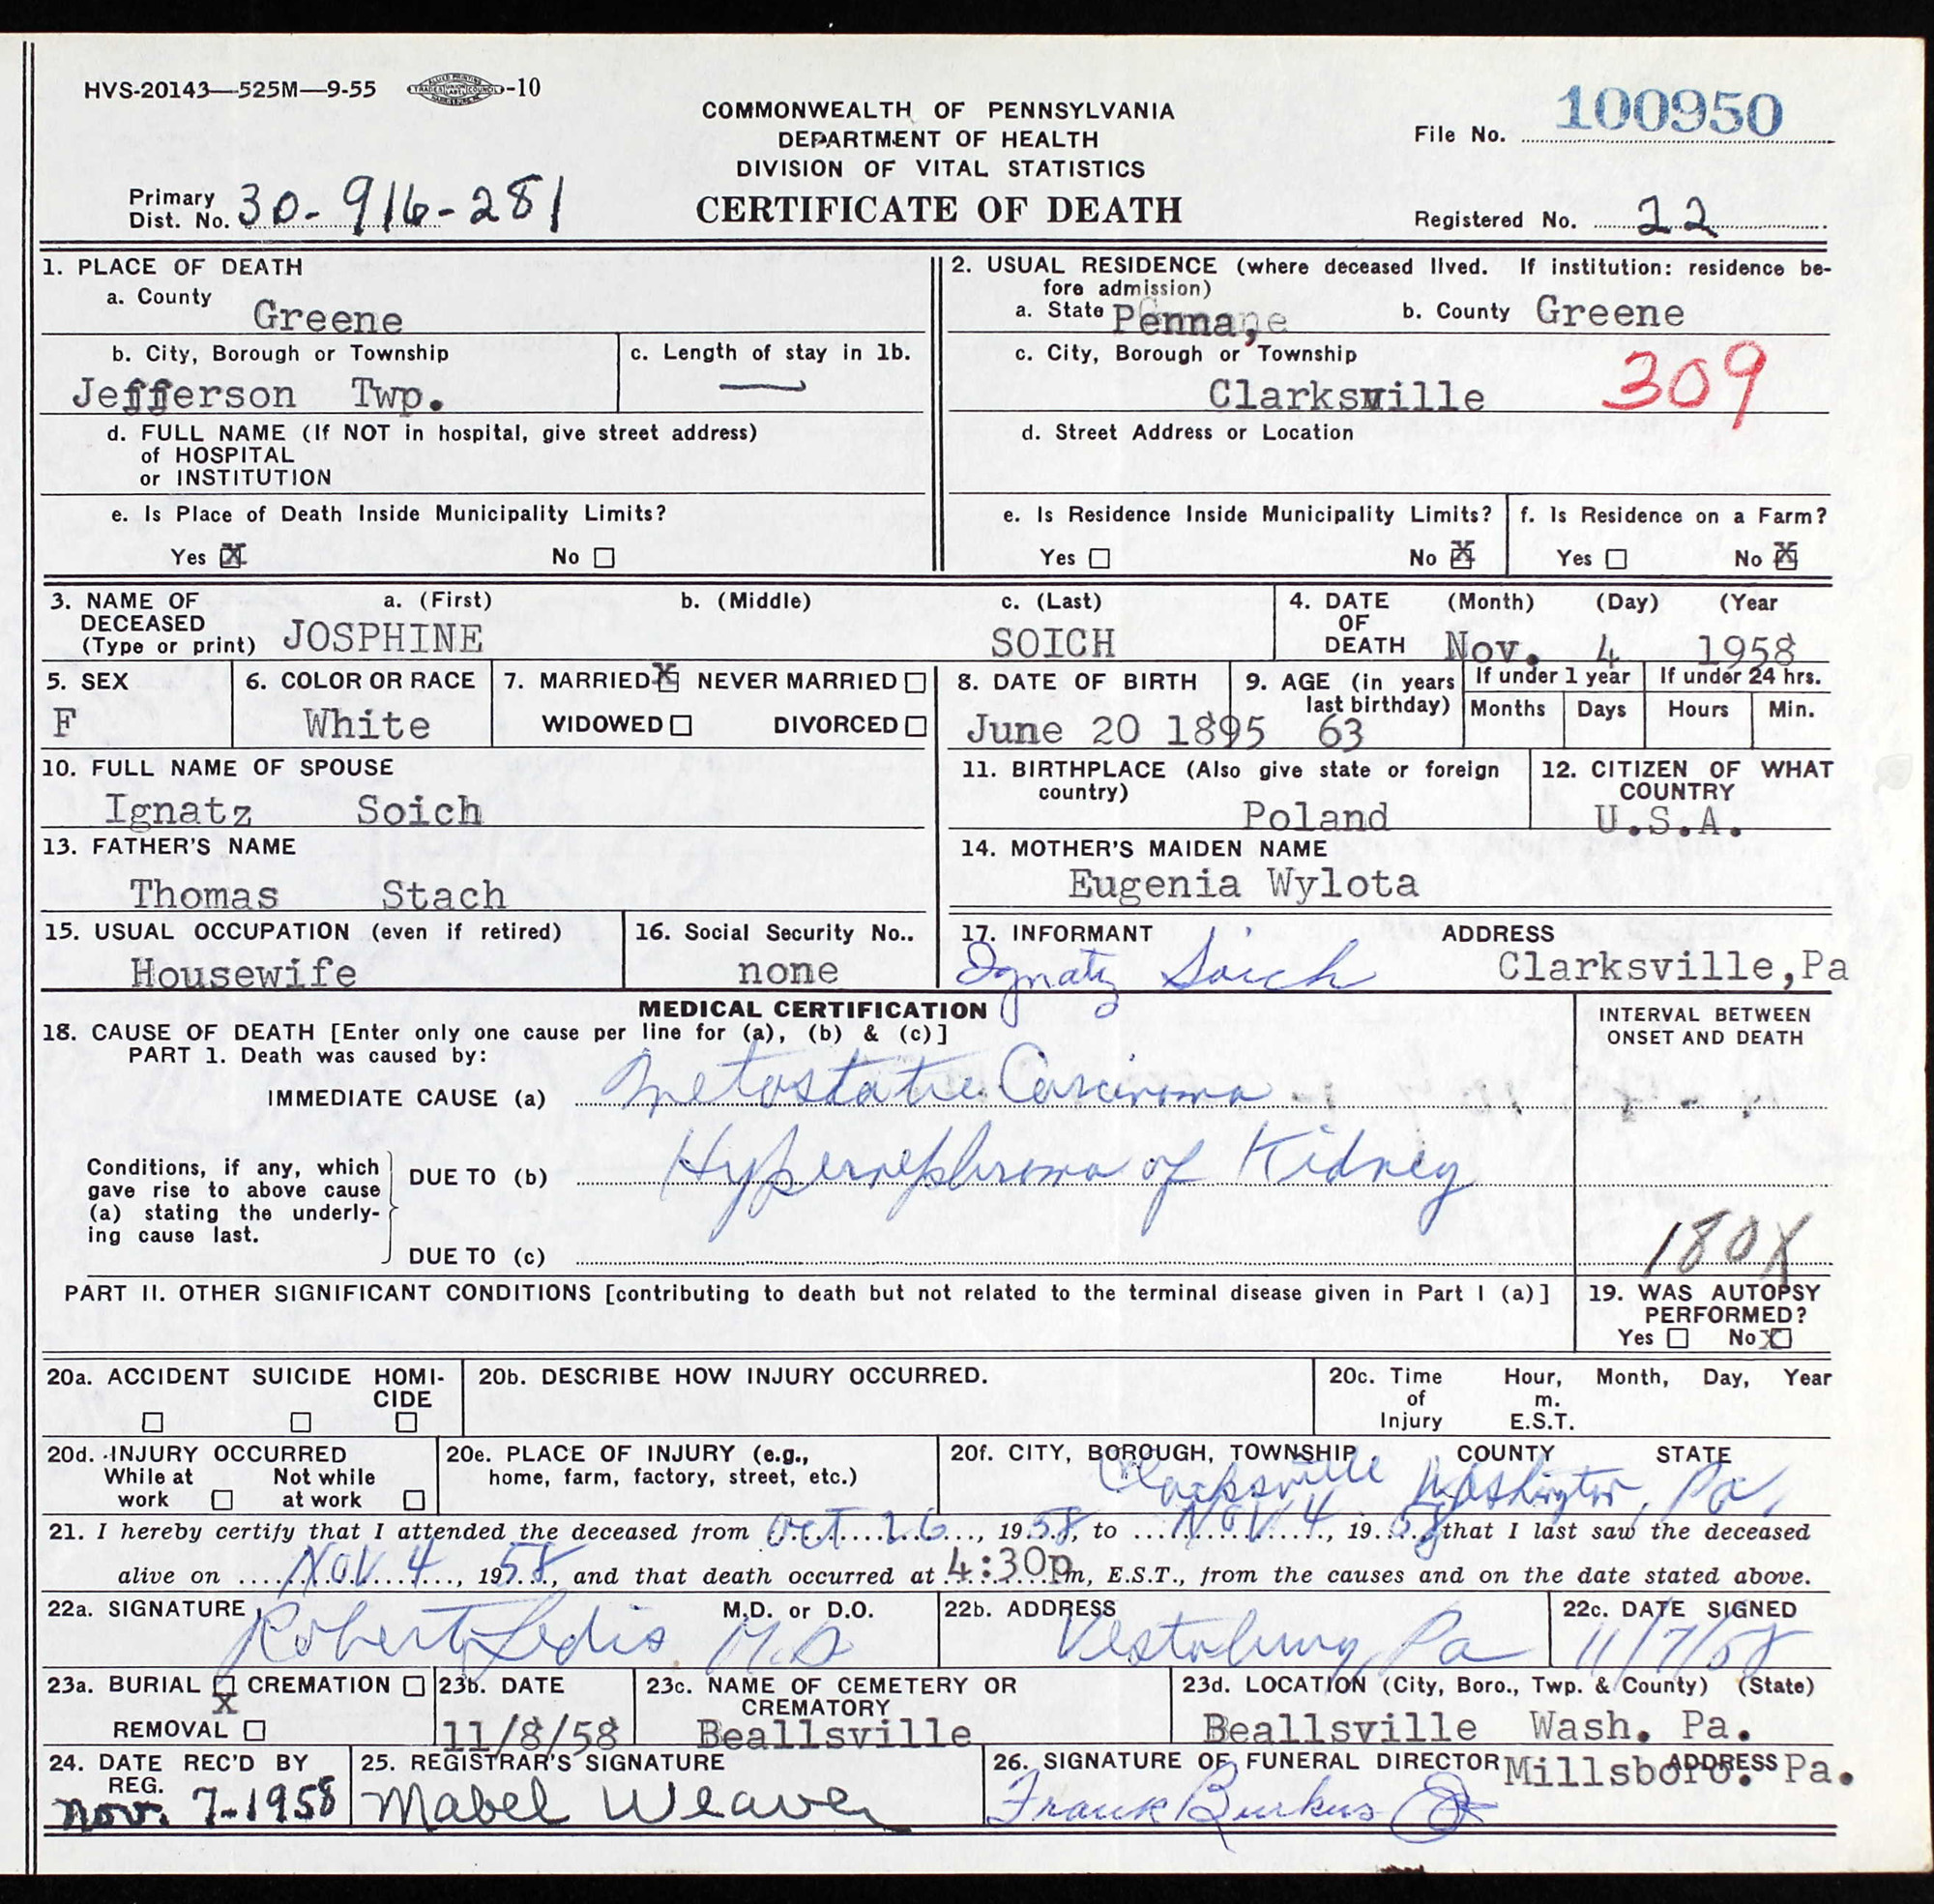 HVS-20143—525M—9-55 -10
COMMONWEALTH OF PENNSYLVANIA
DEPARTMENT OF HEALTH
DIVISION OF VITAL STATISTICS
CERTIFICATE OF DEATH
File No. 100950
Primary
Dist. No. 30-916-281
Registered No. 22
1. PLACE OF DEATH
a. County Greene
b. City, Borough or Township
Jefferson Twp.
c. Length of stay in 1b.
—
d. FULL NAME (If NOT in hospital, give street address)
of HOSPITAL
or INSTITUTION
e. Is Place of Death Inside Municipality Limits?
Yes X No
2. USUAL RESIDENCE (where deceased lived. If institution: residence be-
fore admission)
a. State Penna, b. County Greene
c. City, Borough or Township
Clarksville 309
d. Street Address or Location
e. Is Residence Inside Municipality Limits?
Yes No X
f. Is Residence on a Farm?
Yes No X
3. NAME OF
DECEASED
(Type or print)
a. (First) b. (Middle) c. (Last)
JOSPHINE SOICH
4. DATE
OF
DEATH
(Month) (Day) (Year
Nov. 4 1958
5. SEX
F
6. COLOR OR RACE
White
7. MARRIED X NEVER MARRIED
WIDOWED DIVORCED
8. DATE OF BIRTH
June 20 1895
9. AGE (in years
last birthday)
63
If under 1 year
Months Days
If under 24 hrs.
Hours Min.
10. FULL NAME OF SPOUSE
Ignatz Soich
11. BIRTHPLACE (Also give state or foreign
country)
Poland
12. CITIZEN OF WHAT
COUNTRY
U.S.A.
13. FATHER'S NAME
Thomas Stach
14. MOTHER'S MAIDEN NAME
Eugenia Wylota
15. USUAL OCCUPATION (even if retired)
Housewife
16. Social Security No..
none
17. INFORMANT ADDRESS
Ignatz Soich Clarksville,Pa
MEDICAL CERTIFICATION
18. CAUSE OF DEATH [Enter only one cause per line for (a), (b) & (c)]
PART 1. Death was caused by:
INTERVAL BETWEEN
ONSET AND DEATH
IMMEDIATE CAUSE (a) Metastatic Carcinoma
Conditions, if any, which
gave rise to above cause
(a) stating the underly-
ing cause last.
DUE TO (b) Hypernephroma of Kidney
DUE TO (c)
180X
PART II. OTHER SIGNIFICANT CONDITIONS [contributing to death but not related to the terminal disease given in Part I (a)]
19. WAS AUTOPSY
PERFORMED?
Yes No X
20a. ACCIDENT SUICIDE HOMI-
CIDE
20b. DESCRIBE HOW INJURY OCCURRED.
20c. Time
of
Injury
Hour, Month, Day, Year
m.
E.S.T.
20d. INJURY OCCURRED
While at
work
Not while
at work
20e. PLACE OF INJURY (e.g.,
home, farm, factory, street, etc.)
20f. CITY, BOROUGH, TOWNSHIP COUNTY STATE
Clarksville Washington, Pa,
21. I hereby certify that I attended the deceased from Oct 26, 1958, to Nov 4, 1958 that I last saw the deceased
alive on Nov 4, 1958, and that death occurred at 4:30pm, E.S.T., from the causes and on the date stated above.
22a. SIGNATURE M.D. or D.O.
Robert M.D
22b. ADDRESS
Vestaburg, Pa
22c. DATE SIGNED
11/7/58
23a. BURIAL X CREMATION
REMOVAL
23b. DATE
11/8/58
23c. NAME OF CEMETERY OR
CREMATORY
Beallsville
23d. LOCATION (City, Boro., Twp. & County) (State)
Beallsville Wash. Pa.
24. DATE REC'D BY
REG.
Nov. 7-1958
25. REGISTRAR'S SIGNATURE
Mabel Weaver
26. SIGNATURE OF FUNERAL DIRECTOR ADDRESS
Millsboro. Pa.
Frank Burkus